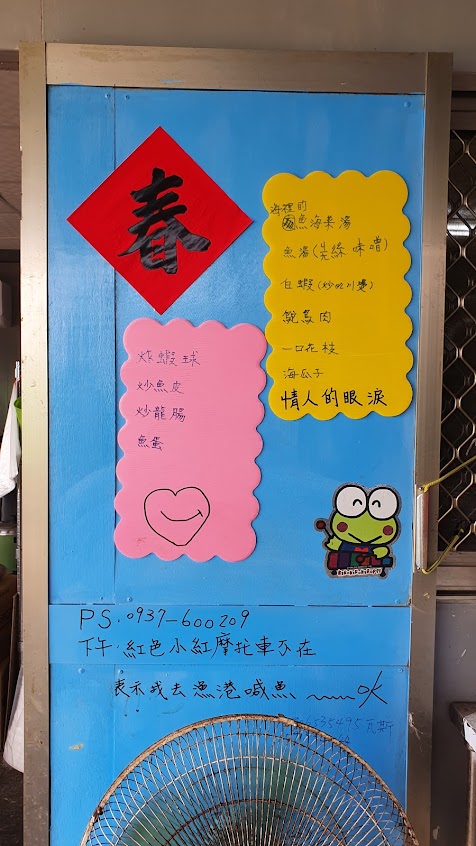 春
海裡的
魚海菜湯
魚湯(味噌)
白蝦(炒)
魚肉
一口花枝
海瓜子
情人的眼淚
炸蝦球
炒魚皮
炒龍腸
魚蛋
PS.0937-600209
下午.紅色小紅摩托車不在
表示我去漁港喊魚 OK
6535495 瓦斯